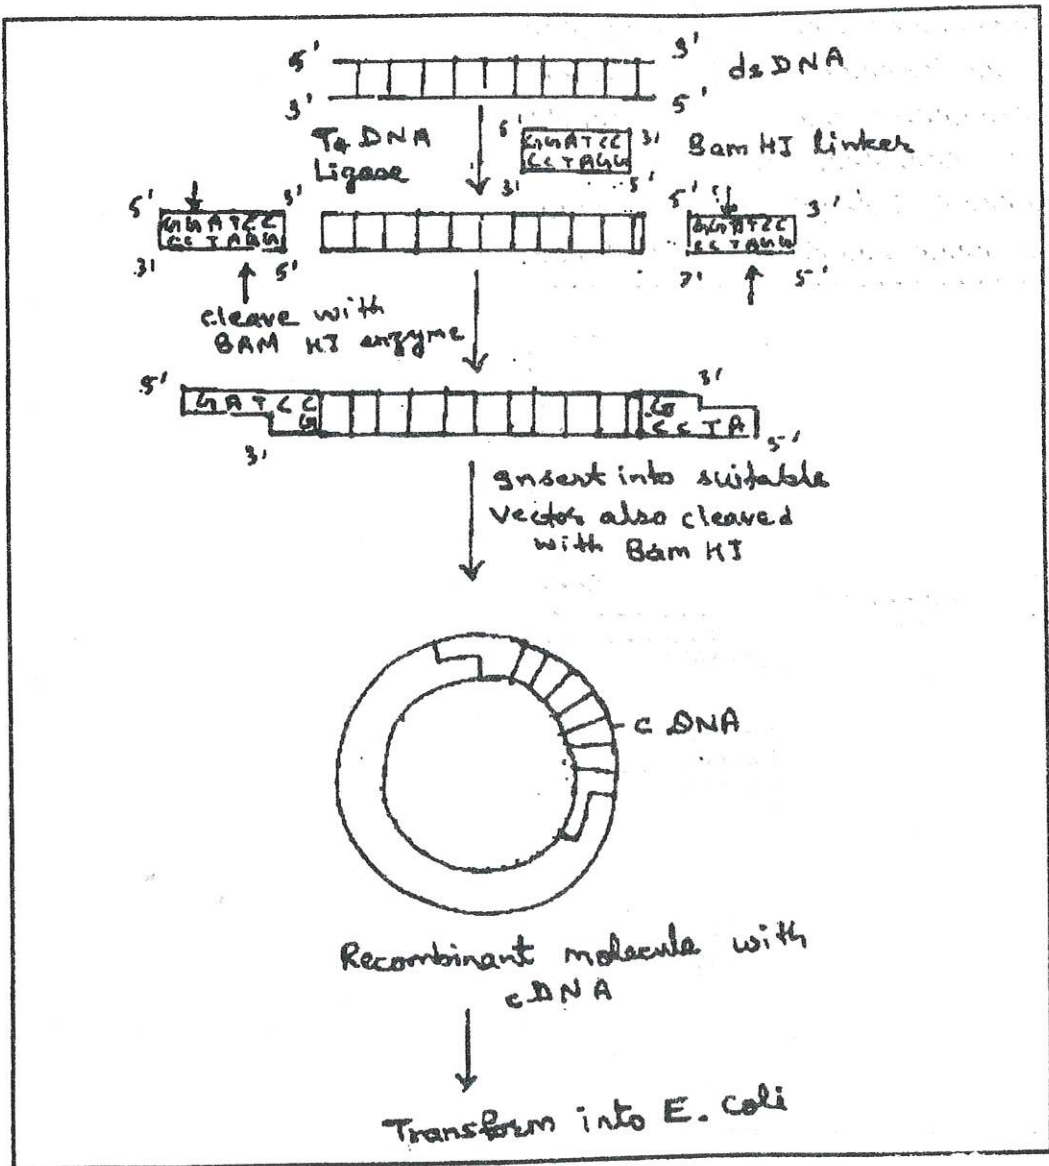 5' 3' ds DNA
3' 5'
T4 DNA Ligase
5' GGATCC 3'
CCTAGG
3' 5'
Bam HI linker
5' GGATCC 3'
3' CCTAGG 5'
5' GGATCC 3'
3' CCTAGG 5'
cleave with
BAM HI enzyme
5' GATCC G 3'
3' G CCTA 5'
Insert into suitable
Vector also cleaved
with Bam HI
c DNA
Recombinant molecule with
cDNA
Transform into E. coli